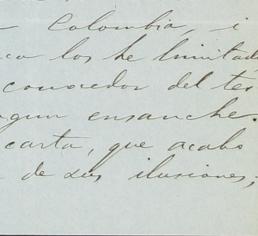 Colombia, i
los he limitado
conocedor del tér
ensanche.
carta, que acabo
de sus ilusiones,